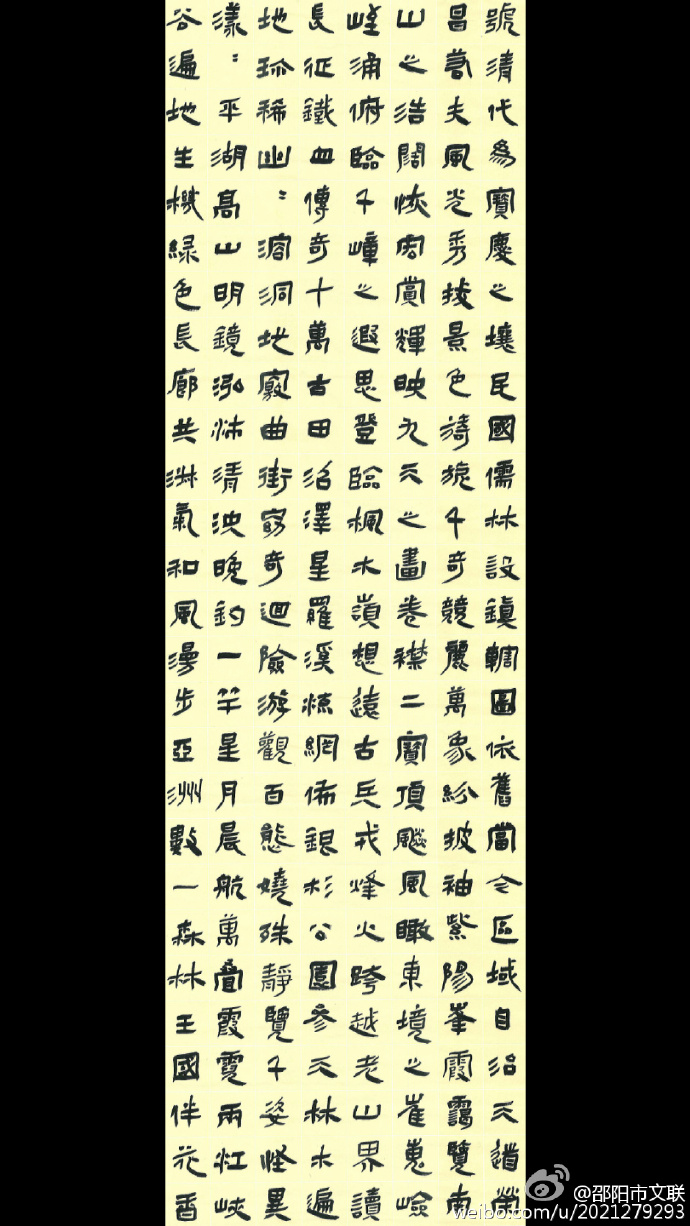 號清代為寶慶之壤民國儒林設鎮轄依舊當今區域自治天道
昌夫風光秀景色旖旎千奇競麗萬象紛披袖紫陽峯霞靄覽南
山之浩闊恢宏賞輝映九天之畫卷襟二寶頂飈風瞰東境之崔嵬嶮
峰涌俯臨千嶂之遐思登臨楓木嶺想遠古兵戎烽火跨越老山界讀
長征鐵血傳奇十萬古田沼澤星羅溪流網佈銀杉公園參天林木遍
地珍稀幽〻溶洞地竅曲街窈奇迴險游觀百態嬈殊靜覽千姿怪異
漾〻平湖高山明鏡泓沛清泱晚釣一竿星月晨航萬疊霞霓兩江峽
谷遍地生機綠色長廊共淋氣和風漫步亞洲數一森林王國伴花香
@邵阳市文联
weibo.com/u/2021279293